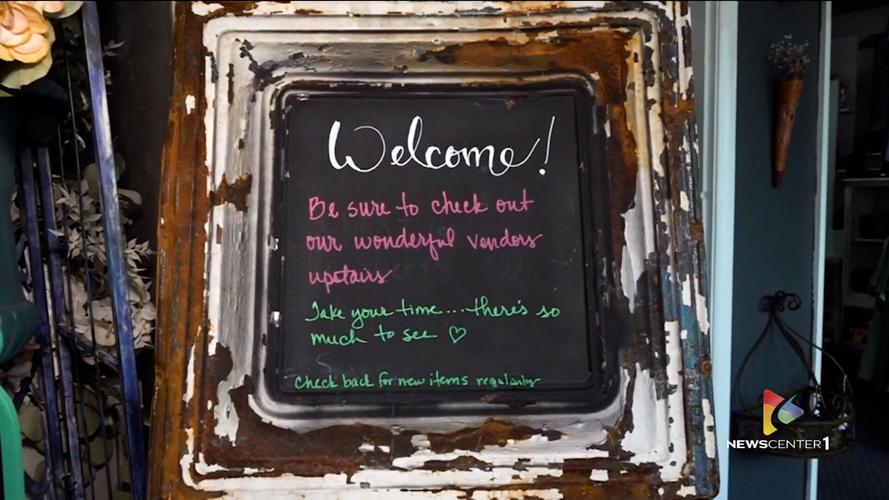 Welcome!
Be sure to check out
our wonderful vendors
upstairs
Take your time....there's so
much to see ♡
Check back for new items regularly
NEWSCENTER1